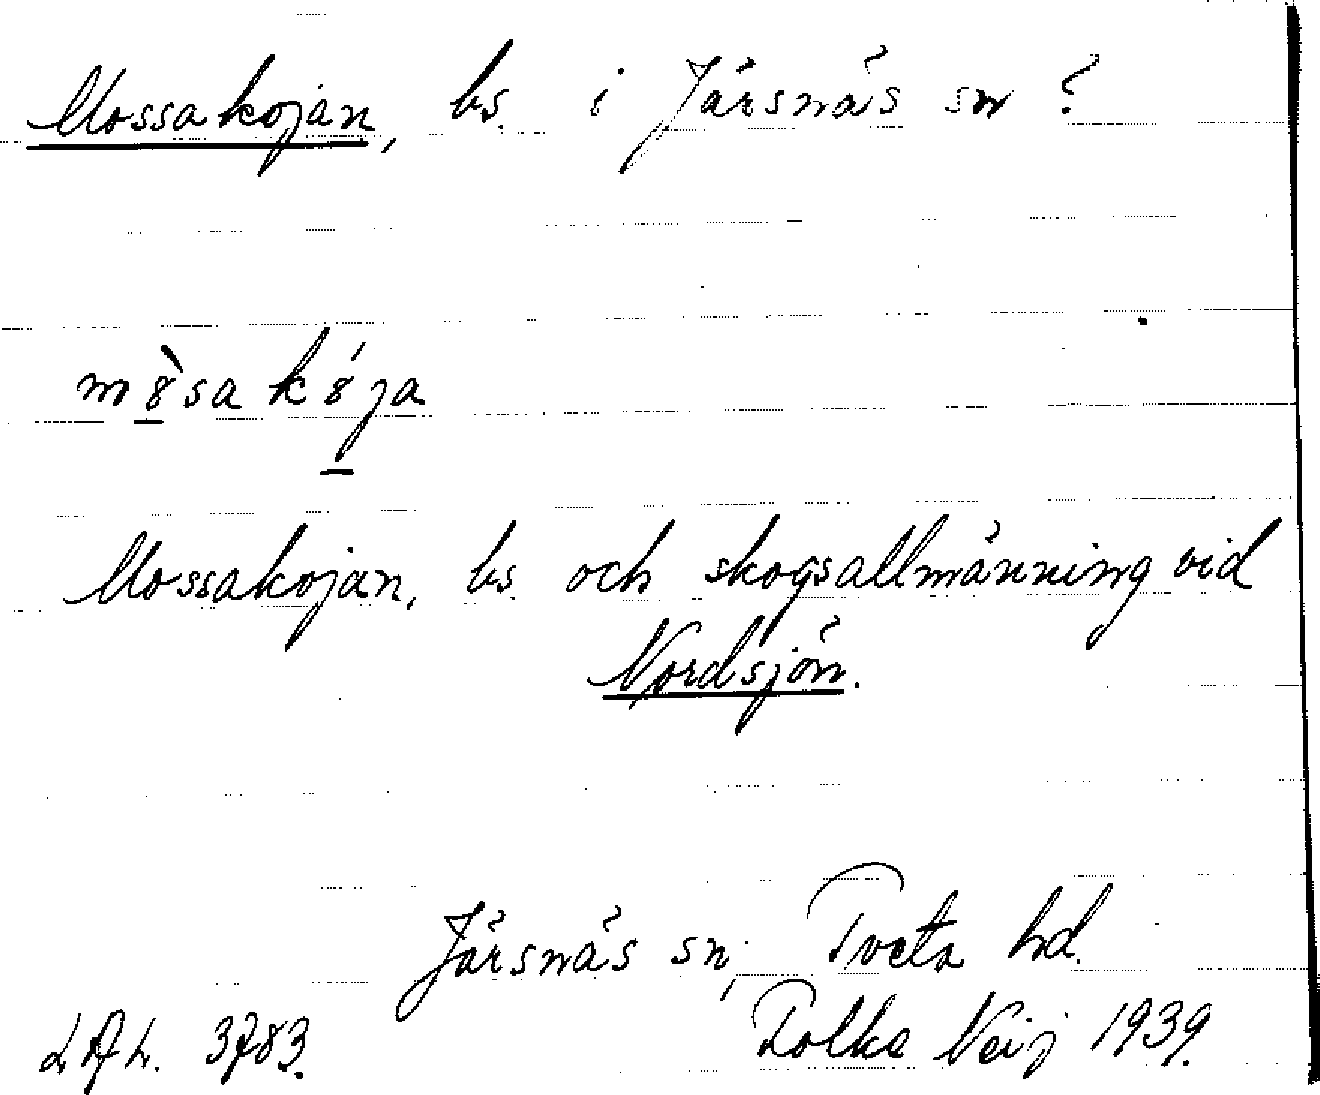 Mossakojan, bs. i Järsnäs sn?
m8̀sa k8́ja
Mossakojan, bs. och skogsallmänning vid
Nordsjön.
Järsnäs sn, Tveta hd.
LAL. 3783. Folke Neij 1939.